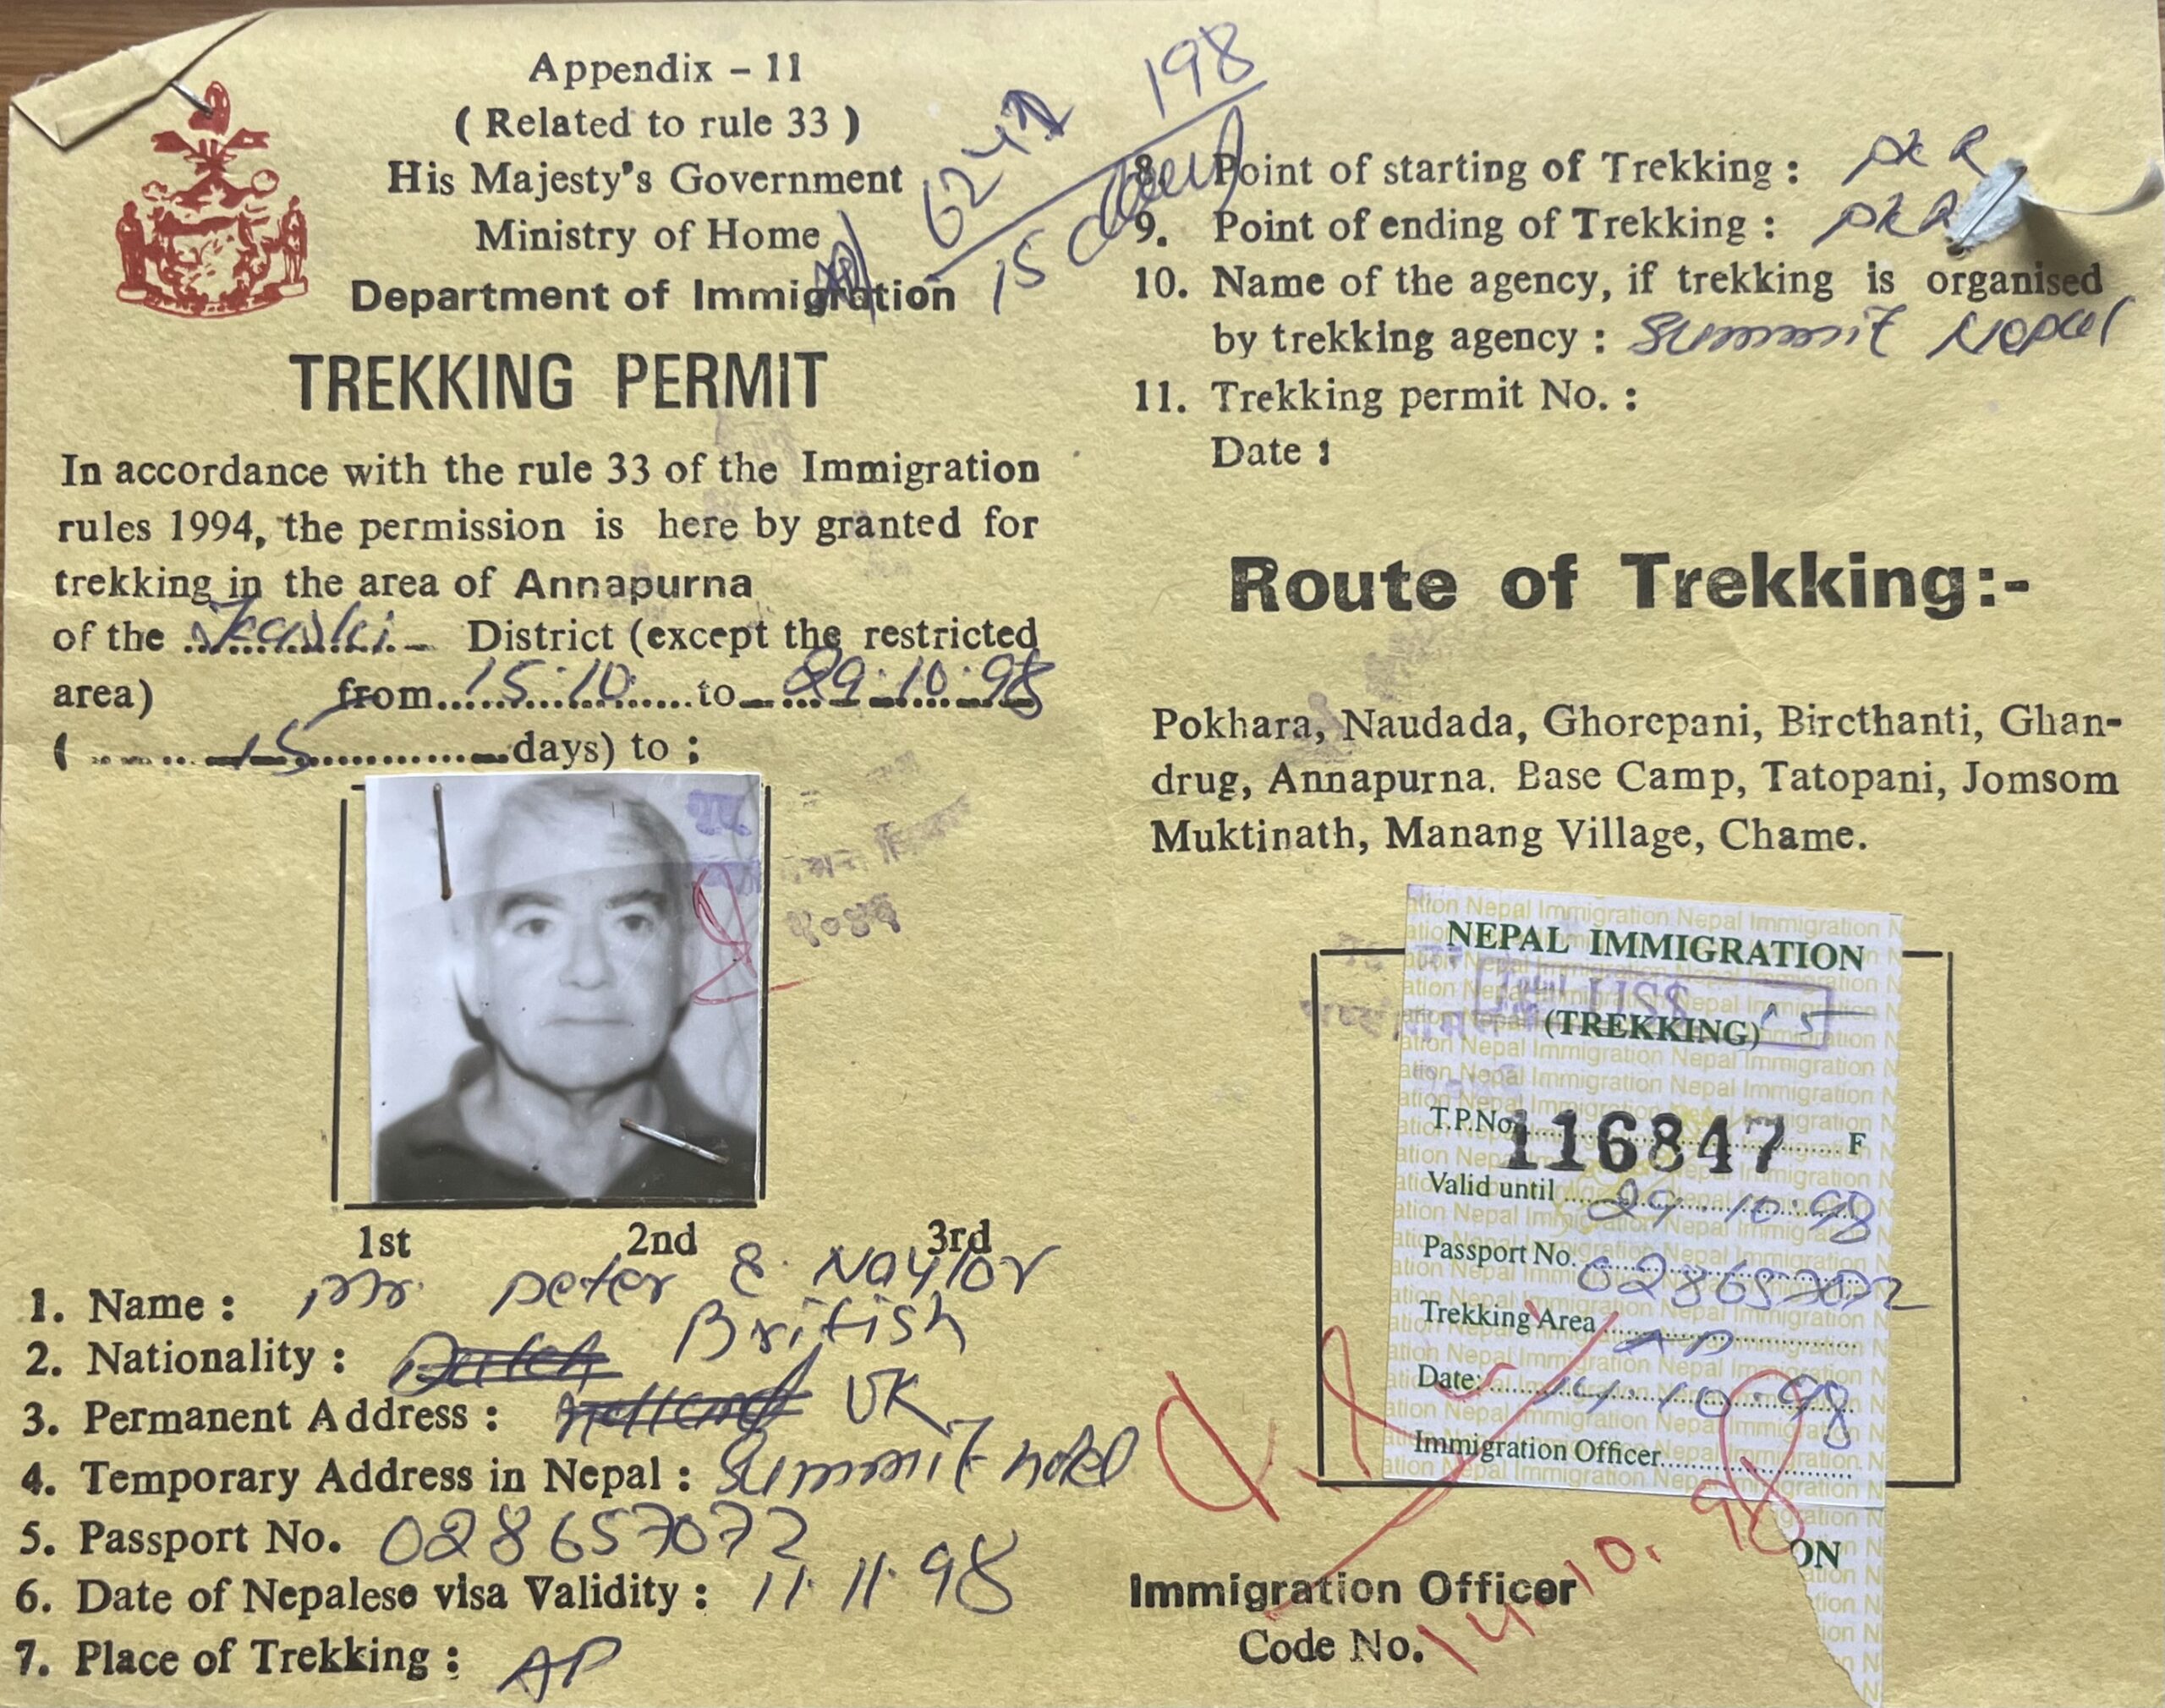 Appendix – 11
( Related to rule 33 )
His Majesty's Government
Ministry of Home
Department of Immigration
TREKKING PERMIT
In accordance with the rule 33 of the Immigration
rules 1994, the permission is here by granted for
trekking in the area of Annapurna
of the Kaski District (except the restricted
area) from 15.10 to 29.10.98
( 15 days) to ;
1st 2nd 3rd
1. Name : Mr. Peter E. Naylor
2. Nationality : Dutch British
3. Permanent Address : Holland UK
4. Temporary Address in Nepal : Summit Hotel
5. Passport No. 028657072
6. Date of Nepalese visa Validity : 11.11.98
7. Place of Trekking : AP
198
15
8. Point of starting of Trekking : PKR
9. Point of ending of Trekking : PKR
10. Name of the agency, if trekking is organised
by trekking agency : Summit Nepal
11. Trekking permit No. :
Date :
Route of Trekking:-
Pokhara, Naudada, Ghorepani, Bircthanti, Ghan-
drug, Annapurna. Base Camp, Tatopani, Jomsom
Muktinath, Manang Village, Chame.
NEPAL IMMIGRATION
US$ 15
(TREKKING)
T.P.No. 116847 F
Valid until 29.10.98
Passport No. 028657072
Trekking Area AP
Date: 14.10.98
Immigration Officer
ON
Immigration Officer
Code No.
14.10.98